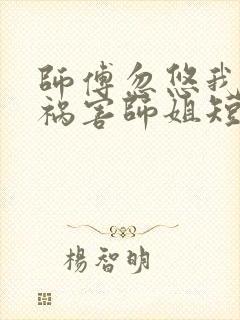 師傅忽悠我
禍害師姐短
楊智明